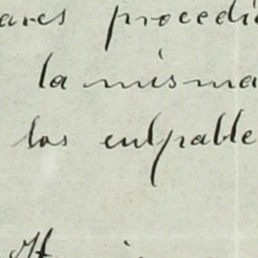 ares procedi
la misma
los culpable